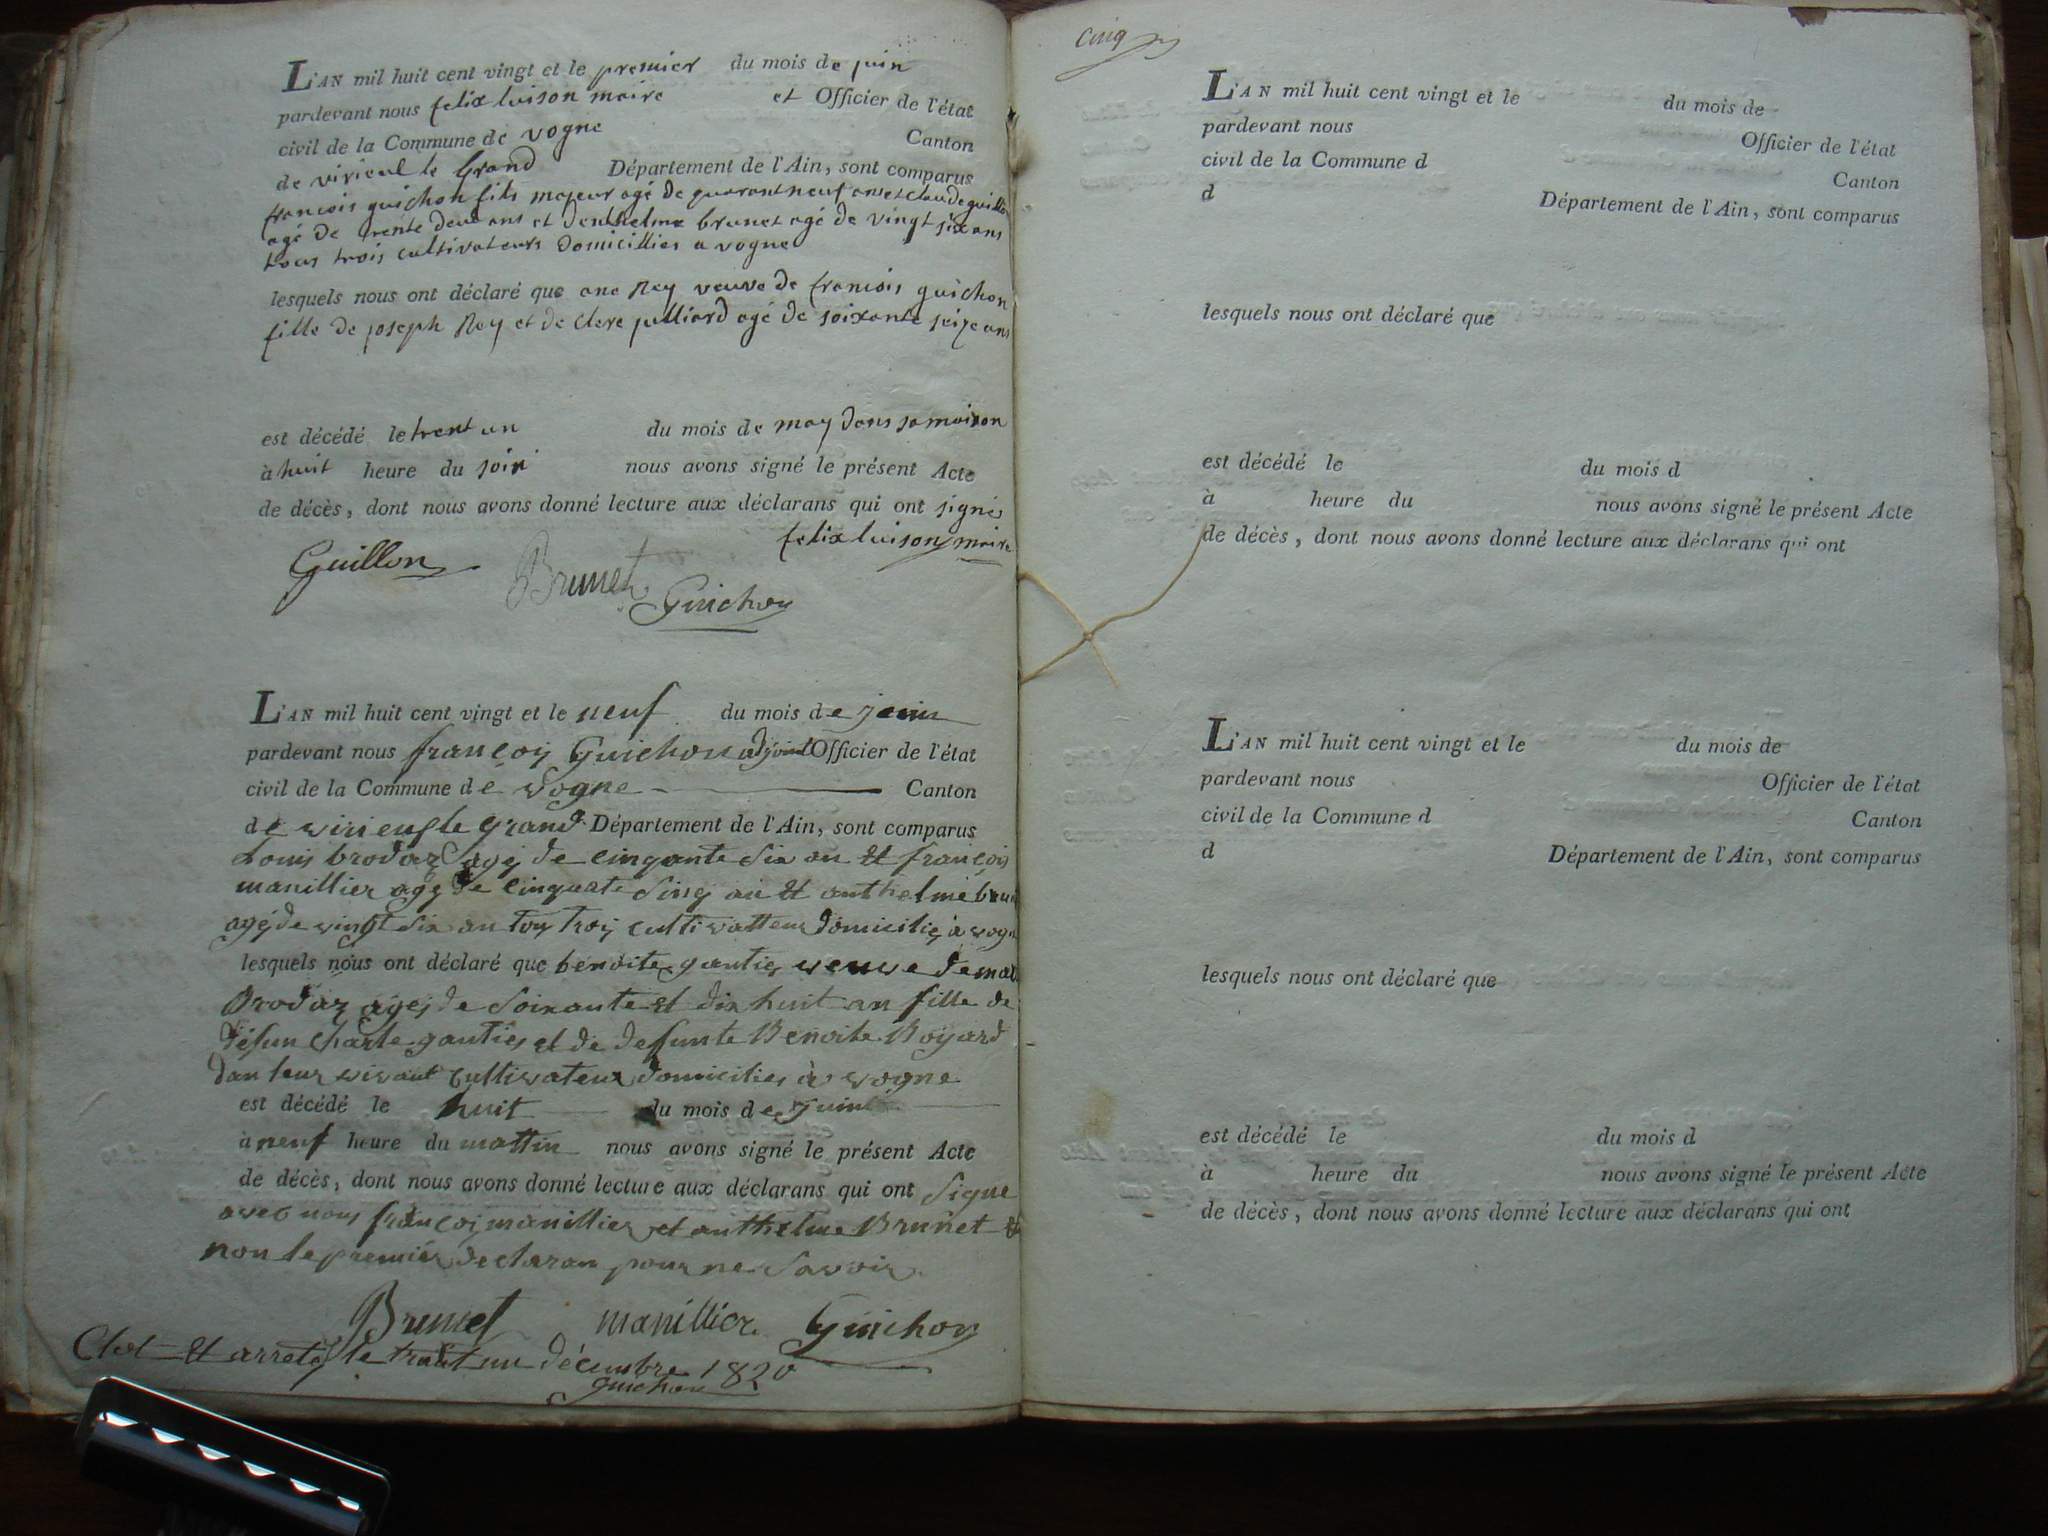 L'AN mil huit cent vingt et le premier du mois de juin
pardevant nous felix luison maire et Officier de l'état
civil de la Commune de vogne Canton
de virieul le Grand Département de l'Ain, sont comparus
francois guichon fils majeur agé de quarant neuf ans et claude guillon
agé de trente deux ans et denthelme brunet agé de vingt six ans
tous trois cultivateurs domicillies a vogne
lesquels nous ont déclaré que ane Rey veuve de francois guichon
fille de joseph Rey et de clere julliard agé de soixante seize ans
est décédé le trent un du mois de may dans sa maison
à huit heure du soir nous avons signé le présent Acte
de décès, dont nous avons donné lecture aux déclarans qui ont signés
felix luison maire
Guillon Brunet Guichon
L'AN mil huit cent vingt et le neuf du mois de juin
pardevant nous françoy Guichon adjoint Officier de l'état
civil de la Commune de vogne Canton
de virieu le grand Département de l'Ain, sont comparus
Louis brodaz agé de cinqante six an et françois
manillier agé de cinquate sinq an et anthelme brun
agé de vingt six an tous troy cultivatteur domicilie à vogn
lesquels nous ont déclaré que benoite gautier veuve de
Brodaz agés de soixante et dix huit an fille de
défun charle gautier et de defunte Benoite Boyard
dan leur vivant cultivateur domicilies à vogne
est décédé le huit du mois de juin
à neuf heure du mattin nous avons signé le présent Acte
de décès, dont nous avons donné lecture aux déclarans qui ont signe
avec nous françoi manillier et anthelme Brunet et
non le premier declaran pour ne savoir
Brunet manillier Guichon
Clot et arreté le trant un décembre 1820
guichon
cinq
L'AN mil huit cent vingt et le du mois de
pardevant nous Officier de l'état
civil de la Commune d Canton
d Département de l'Ain, sont comparus
lesquels nous ont déclaré que
est décédé le du mois d
à heure du nous avons signé le présent Acte
de décès, dont nous avons donné lecture aux déclarans qui ont
L'AN mil huit cent vingt et le du mois de
pardevant nous Officier de l'état
civil de la Commune d Canton
d Département de l'Ain, sont comparus
lesquels nous ont déclaré que
est décédé le du mois d
à heure du nous avons signé le présent Acte
de décès, dont nous avons donné lecture aux déclarans qui ont